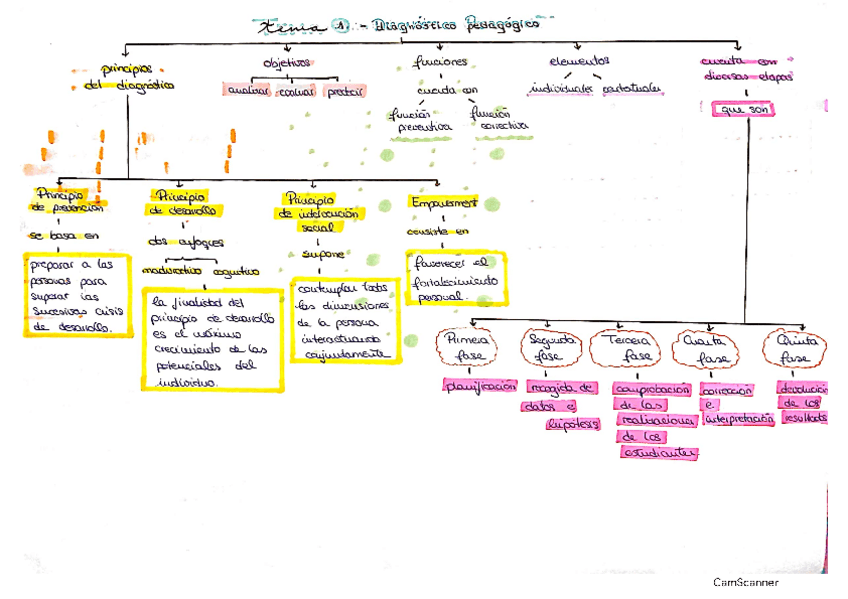 tema 1. - Diagnóstico pedagógico
principios
del diagnóstico
objetivos
analizar evaluar predecir
funciones
cuenta con
función
preventiva
función
correctiva
elementos
individuales contextuales
cuenta con
diversas etapas
que son
Principio
de prevención
se basa en
preparar a las
personas para
superar las
sucesivas crisis
de desarrollo.
Principio
de desarrollo
dos enfoques
madurativo cognitivo
la finalidad del
principio de desarrollo
es el máximo
crecimiento de las
potenciales del
individuo.
Principio
de intervención
social
supone
contemplar todas
las dimensiones
de la persona
interactuando
conjuntamente
Empowerment
consiste en
favorecer el
fortalecimiento
personal.
Primera
fase
planificación
Segunda
fase
recogida de
datos e
hipótesis
Tercera
fase
comprobación
de las
realizaciones
de los
estudiantes
Cuarta
fase
corrección
e
interpretación
Quinta
fase
devolución
de los
resultados
CamScanner